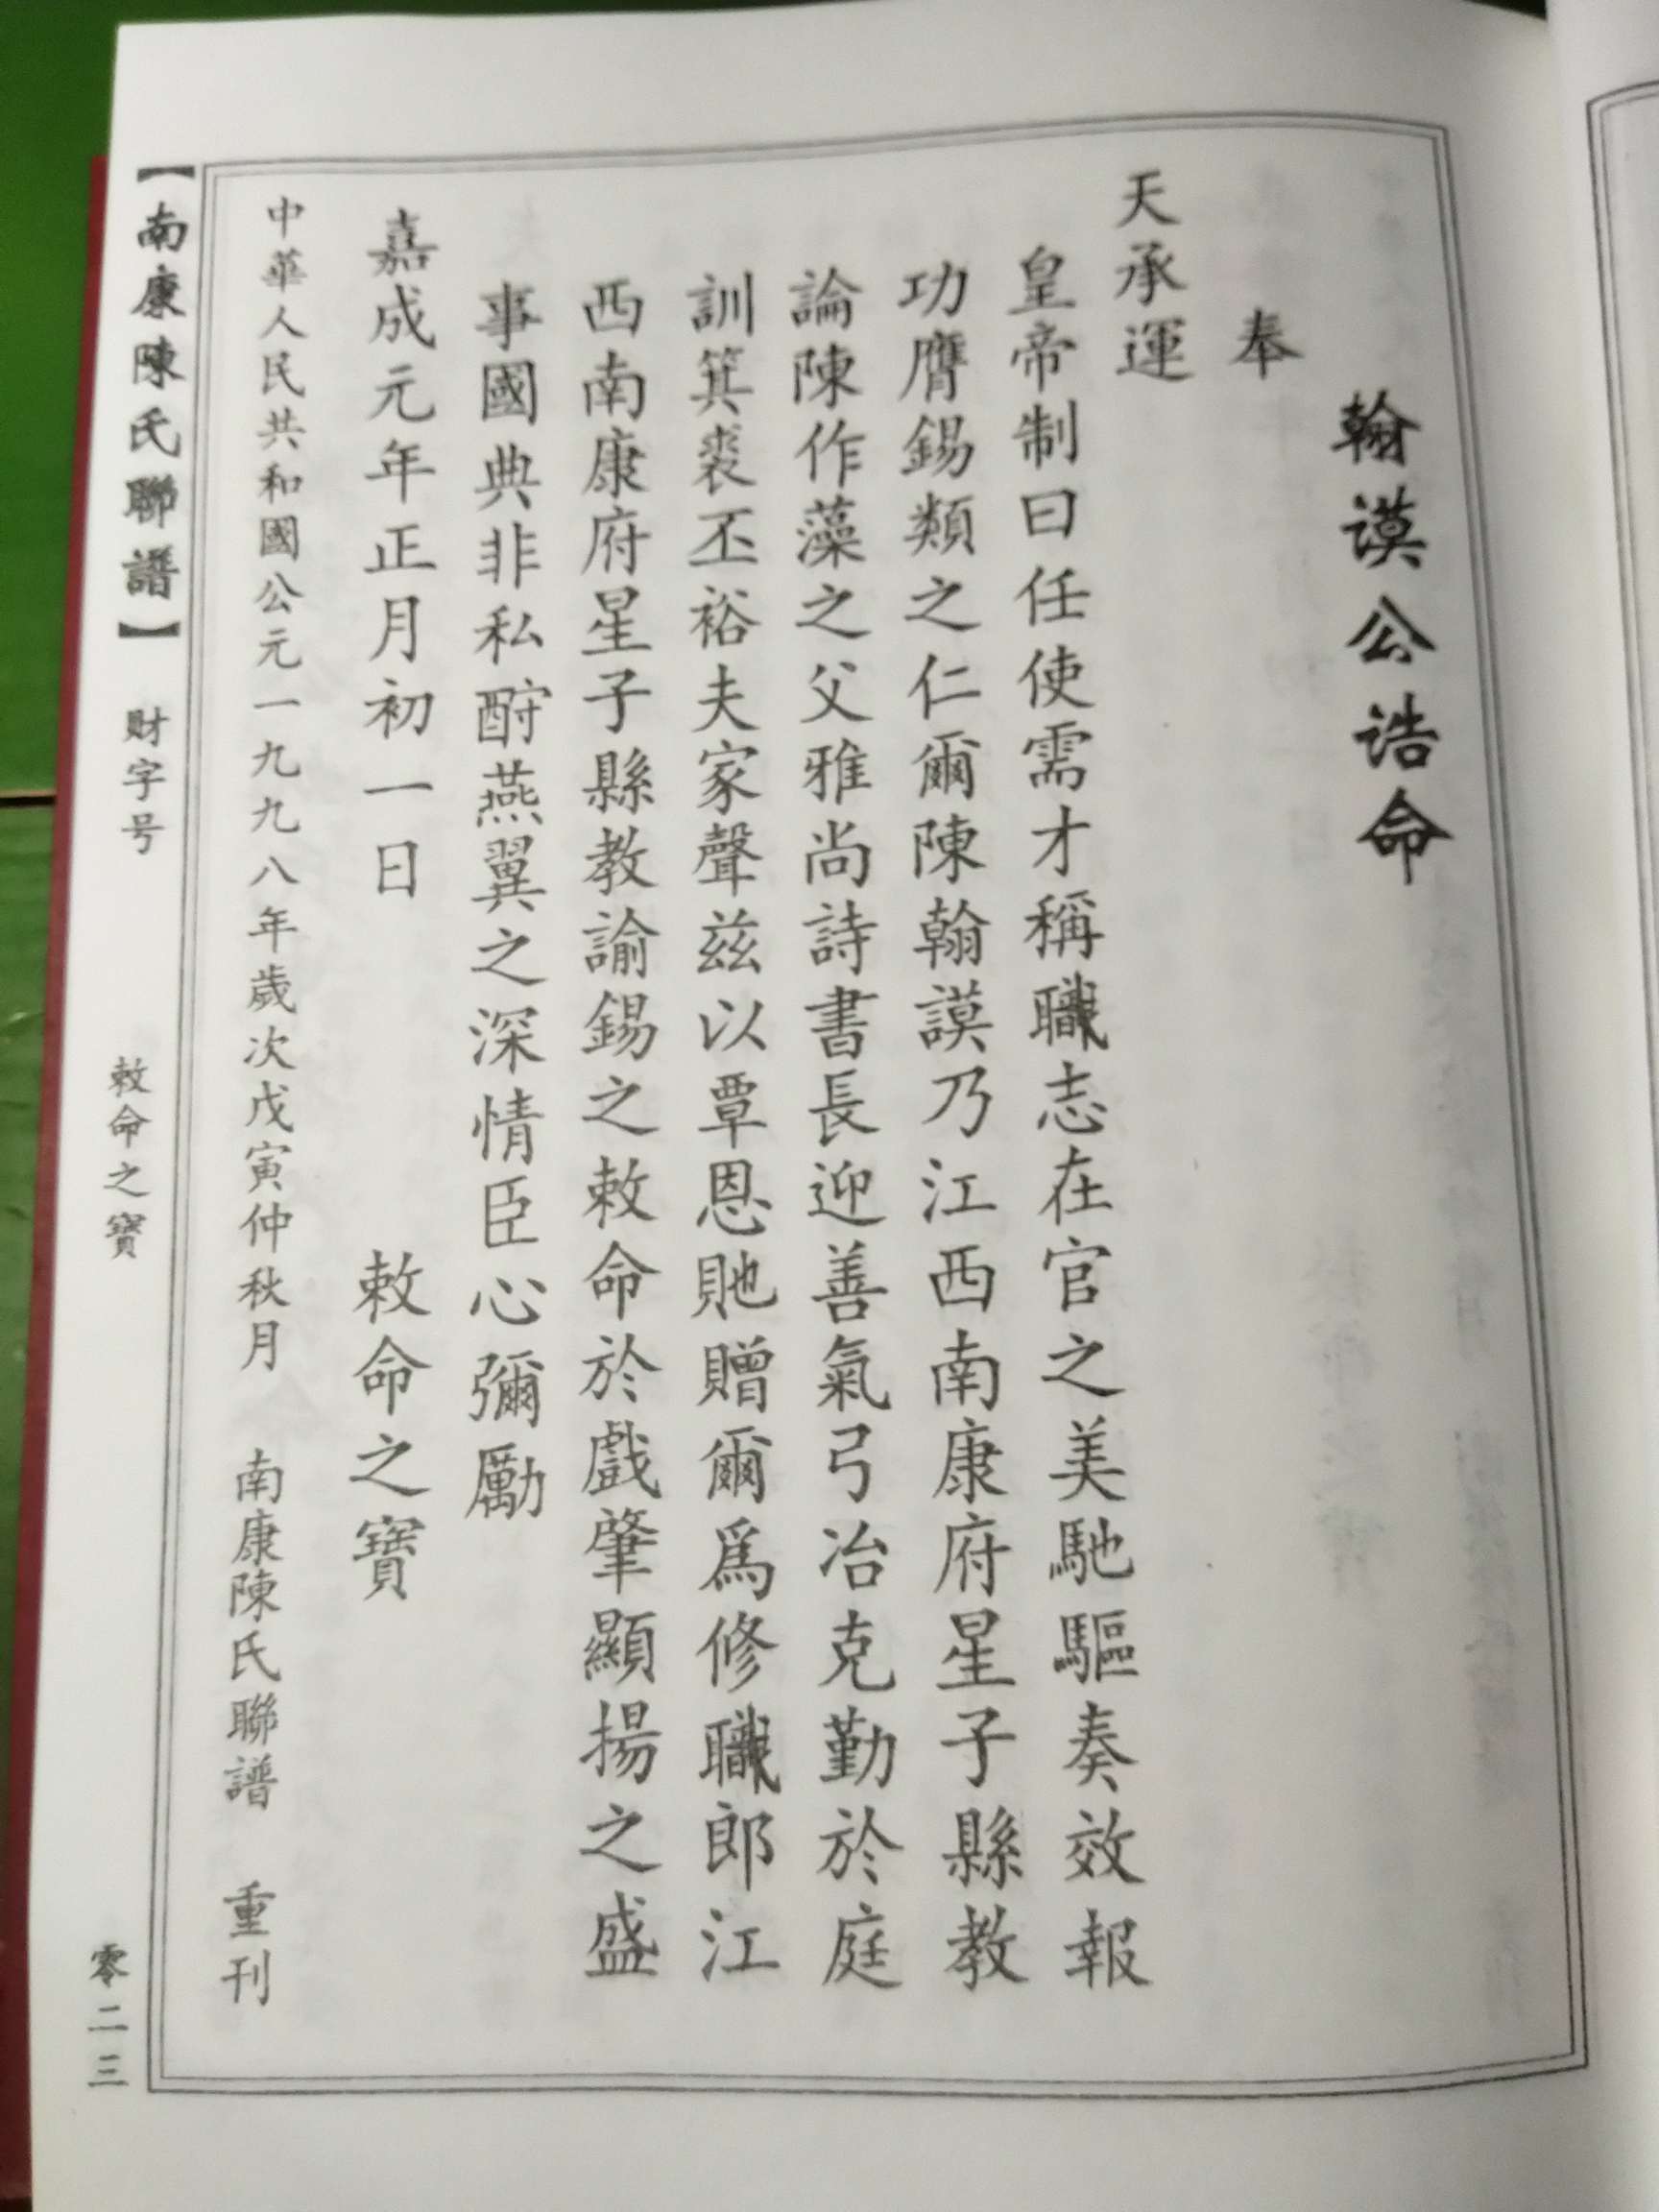 翰谟公诰命
奉
天承運
皇帝制曰任使需才稱職志在官之美馳驅奏效報
功膺錫類之仁爾陳翰謨乃江西南康府星子縣教
論陳作藻之父雅尚詩書長迎善氣弓冶克勤於庭
訓箕裘丕裕夫家聲兹以覃恩貤贈爾爲修職郎江
西南康府星子縣教諭錫之敕命於戲肇顯揚之盛
事國典非私酧燕翼之深情臣心彌勵
嘉成元年正月初一日 敕命之寶
中華人民共和國公元一九九八年歲次戊寅仲秋月 南康陳氏聯譜 重刊
【南康陳氏聯譜】 財字号 敕命之寶 零二三